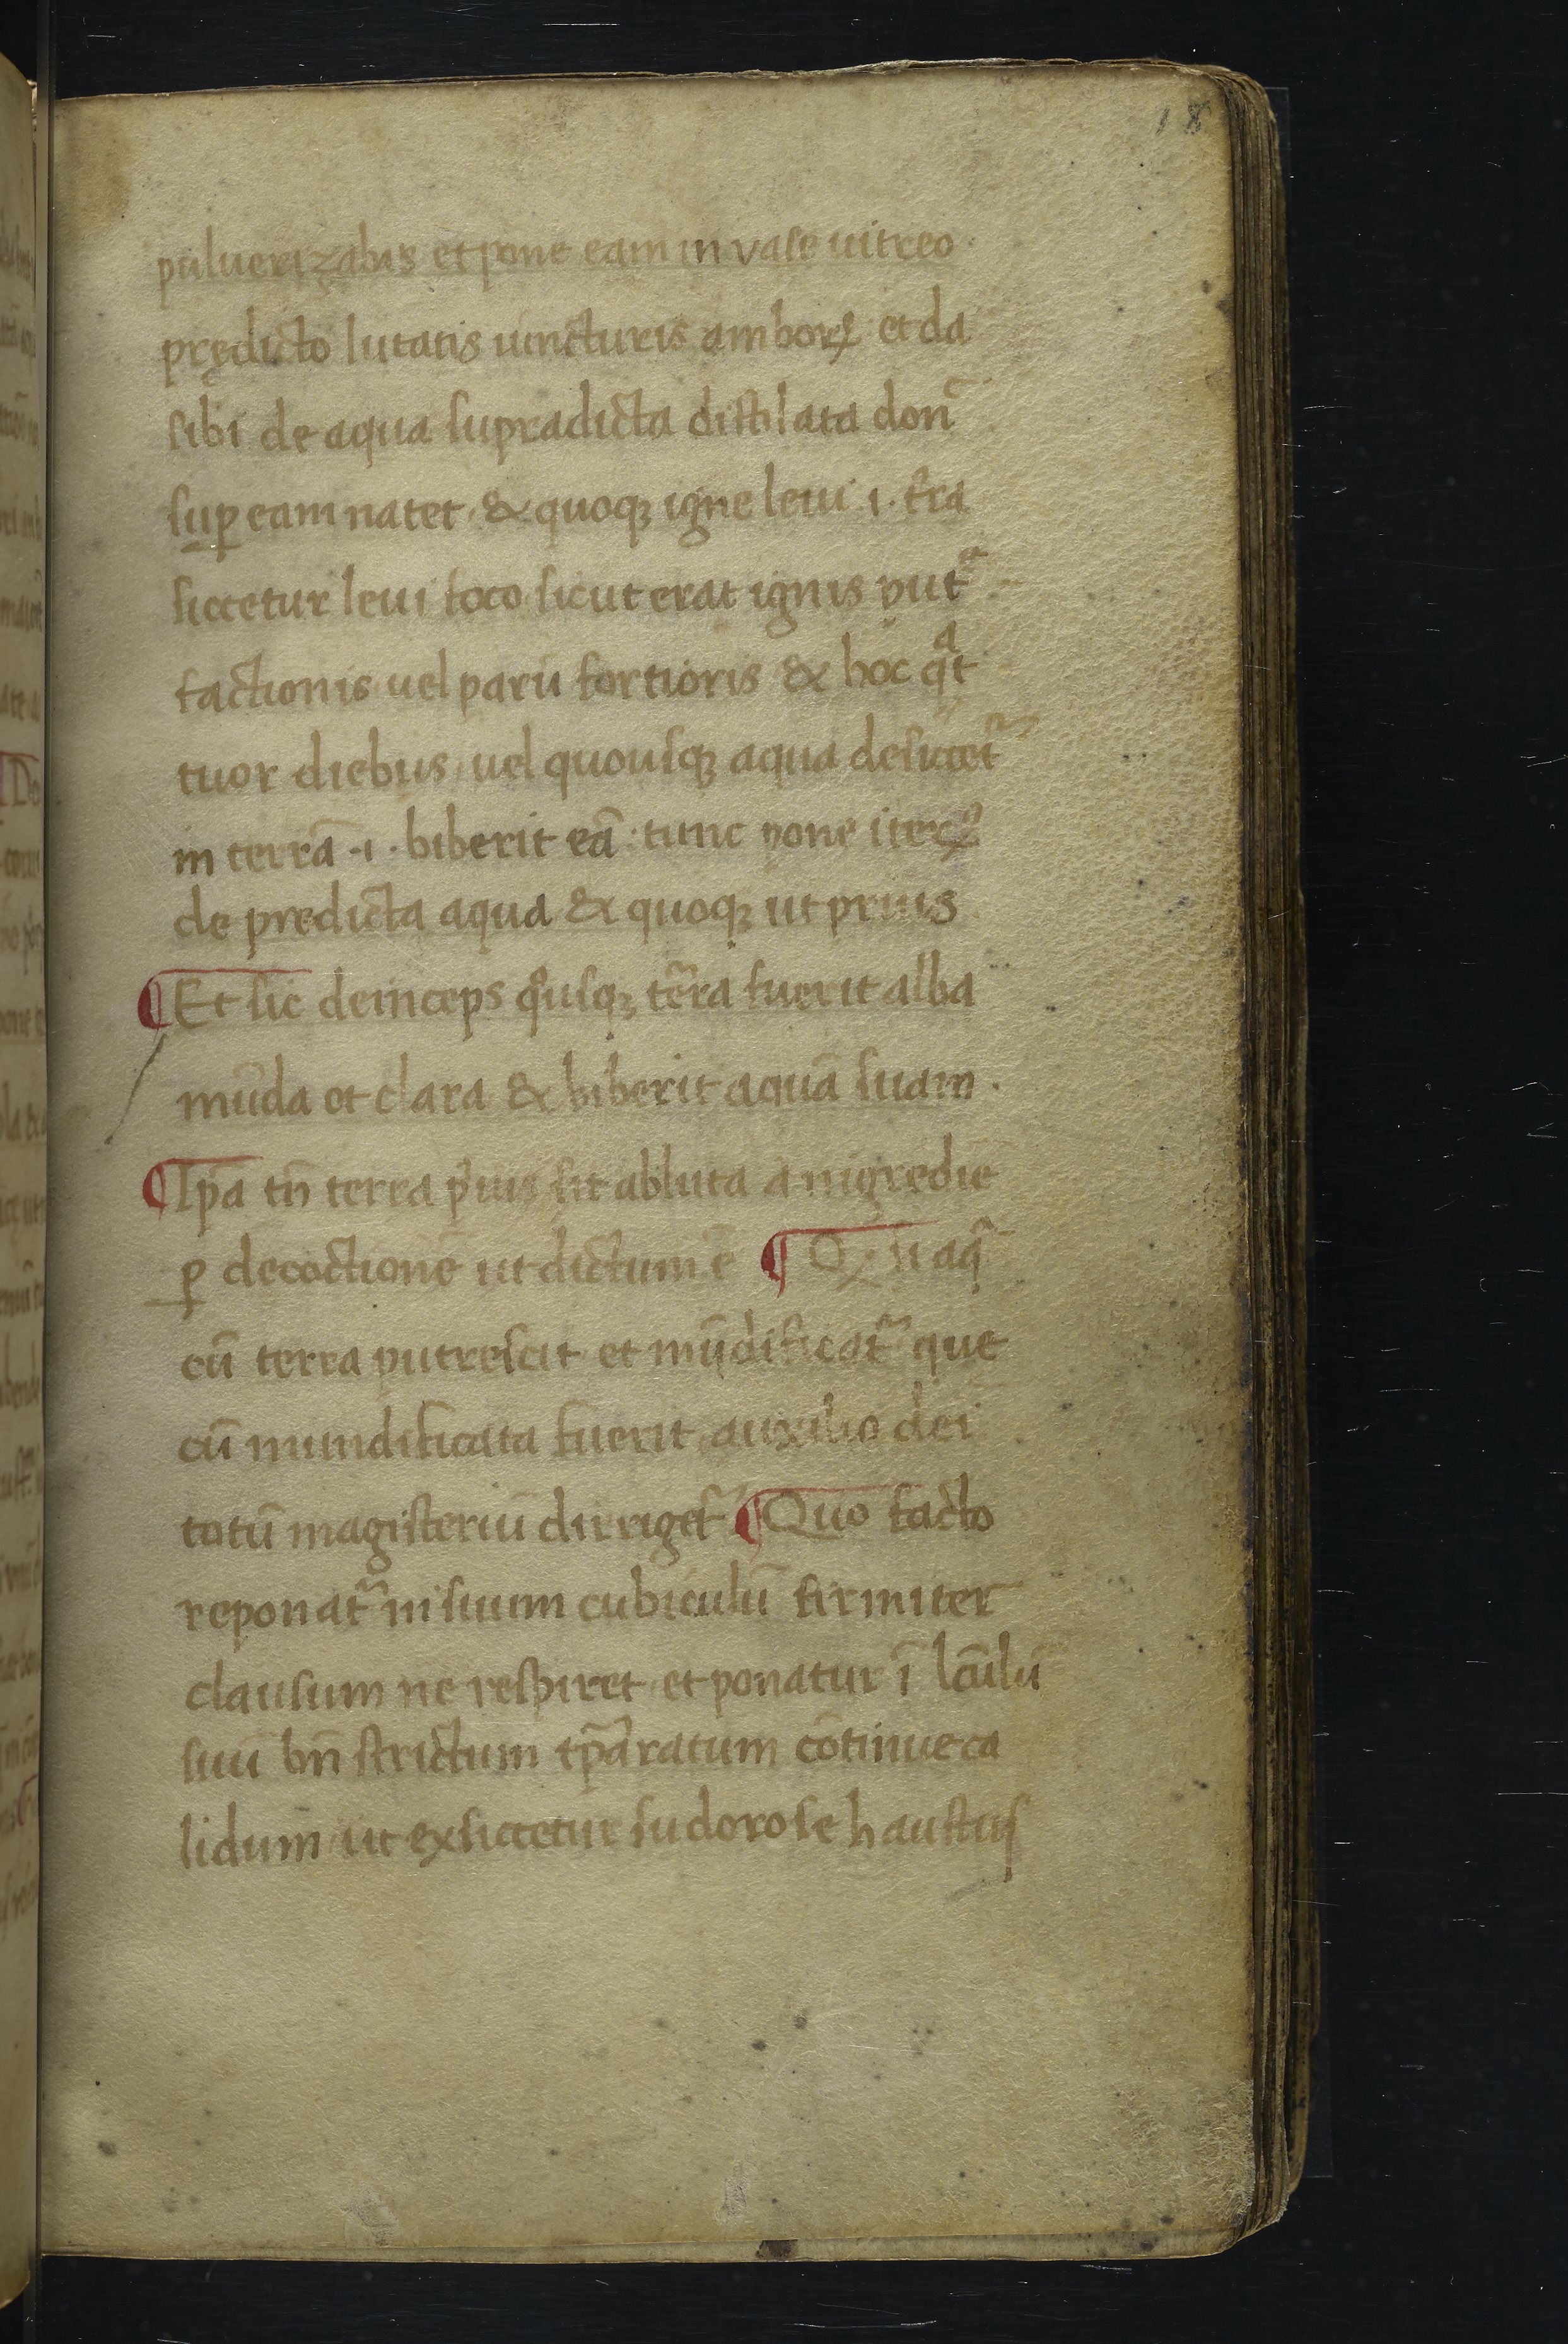 18
puluerizabis et pone eam in vase uitreo
prędicto lutatis iuncturis amborꝝ et da
sibi de aqua supradicta distilata donͨ
suꝑ eam natet · & quoqꝫ igne leui .i. t̃ra
siccetur leui foco sicut erat ignis put͛
factionis uel parū fortioris & hoc qᵃt
tuor diebus uel quousqꝫ aqua desiccet᷑
in terrā ·i· biberit eā : tunc pone iterꝝ
de predicta aqua & quoqꝫ ut prius
¶ Et sic deinceps qͦusqꝫ ter̃ra fuerit alba
mūda et clara & biberit aquā suam .
¶ Ip̄a tn̄ terra pͥus sit abluta a nigredīe
ꝑ decoctionē ut dictum ē ¶ Qꝝ aq̄
cū terra putrescit et mūdificat᷑ que
cū mundificata fuerit auxilio dei
totū magisteriū dirriget᷑ ¶ Quo facto
reponat᷑ in suum cubiculū firmiter
clausum ne respiret et ponatur ī lc̄ulū
suū bn̄ strictum tp̄aratum cōtinue ca
lidum ut exsiccetur sudorose haustus